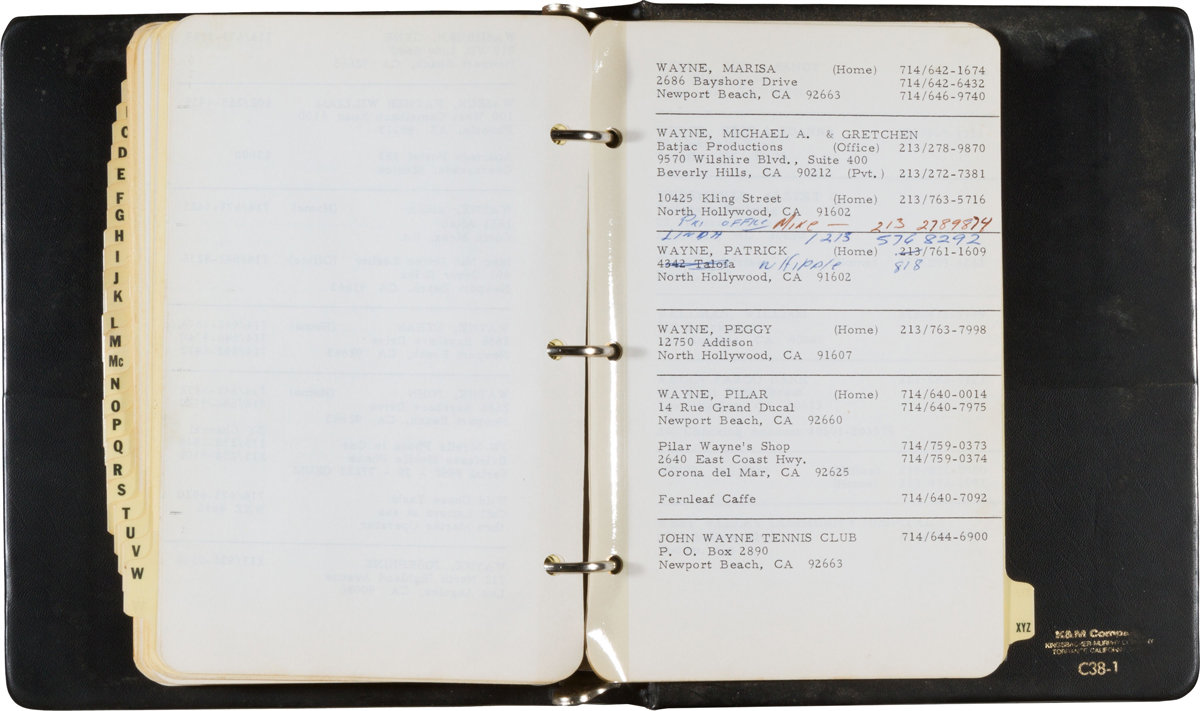 C
D
E
F
G
H
I
J
K
L
M
Mc
N
O
P
Q
R
S
T
U
V
W
WAYNE, MARISA (Home) 714/642-1674
2686 Bayshore Drive 714/642-6432
Newport Beach, CA 92663 714/646-9740
WAYNE, MICHAEL A. & GRETCHEN
Batjac Productions (Office) 213/278-9870
9570 Wilshire Blvd., Suite 400
Beverly Hills, CA 90212 (Pvt.) 213/272-7381
10425 Kling Street (Home) 213/763-5716
North Hollywood, CA 91602
Pri OFFICE Mike — 213 2789874
LINDA 1213 576 8292
WAYNE, PATRICK (Home) 213/761-1609
4342 Talofa WHipple 818
North Hollywood, CA 91602
WAYNE, PEGGY (Home) 213/763-7998
12750 Addison
North Hollywood, CA 91607
WAYNE, PILAR (Home) 714/640-0014
14 Rue Grand Ducal 714/640-7975
Newport Beach, CA 92660
Pilar Wayne's Shop 714/759-0373
2640 East Coast Hwy. 714/759-0374
Corona del Mar, CA 92625
Fernleaf Caffe 714/640-7092
JOHN WAYNE TENNIS CLUB 714/644-6900
P. O. Box 2890
Newport Beach, CA 92663
XYZ
K&M Company
C38-1